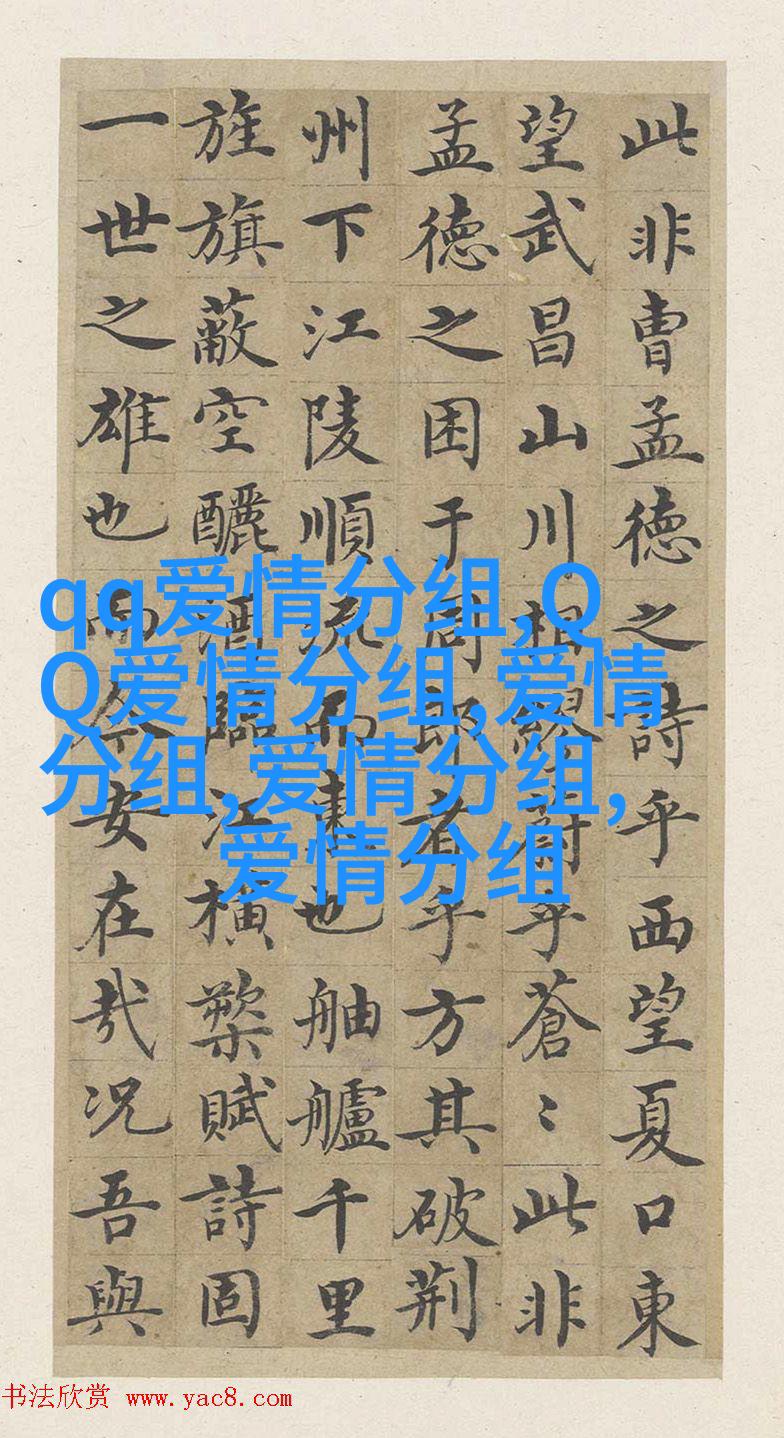 此非曹孟德之詩乎西望夏口東
望武昌山川相繆乎蒼〻此非
孟德之困于周郎者乎方其破荆
州下江陵順流而東也舳艫千里
旌旗蔽空釃酒臨江橫槊賦詩固
一世之雄也而今安在哉况吾與
qq爱情分组,Q
Q爱情分组,爱情
分组,爱情分组,
爱情分组
书法欣赏 www.yac8.com